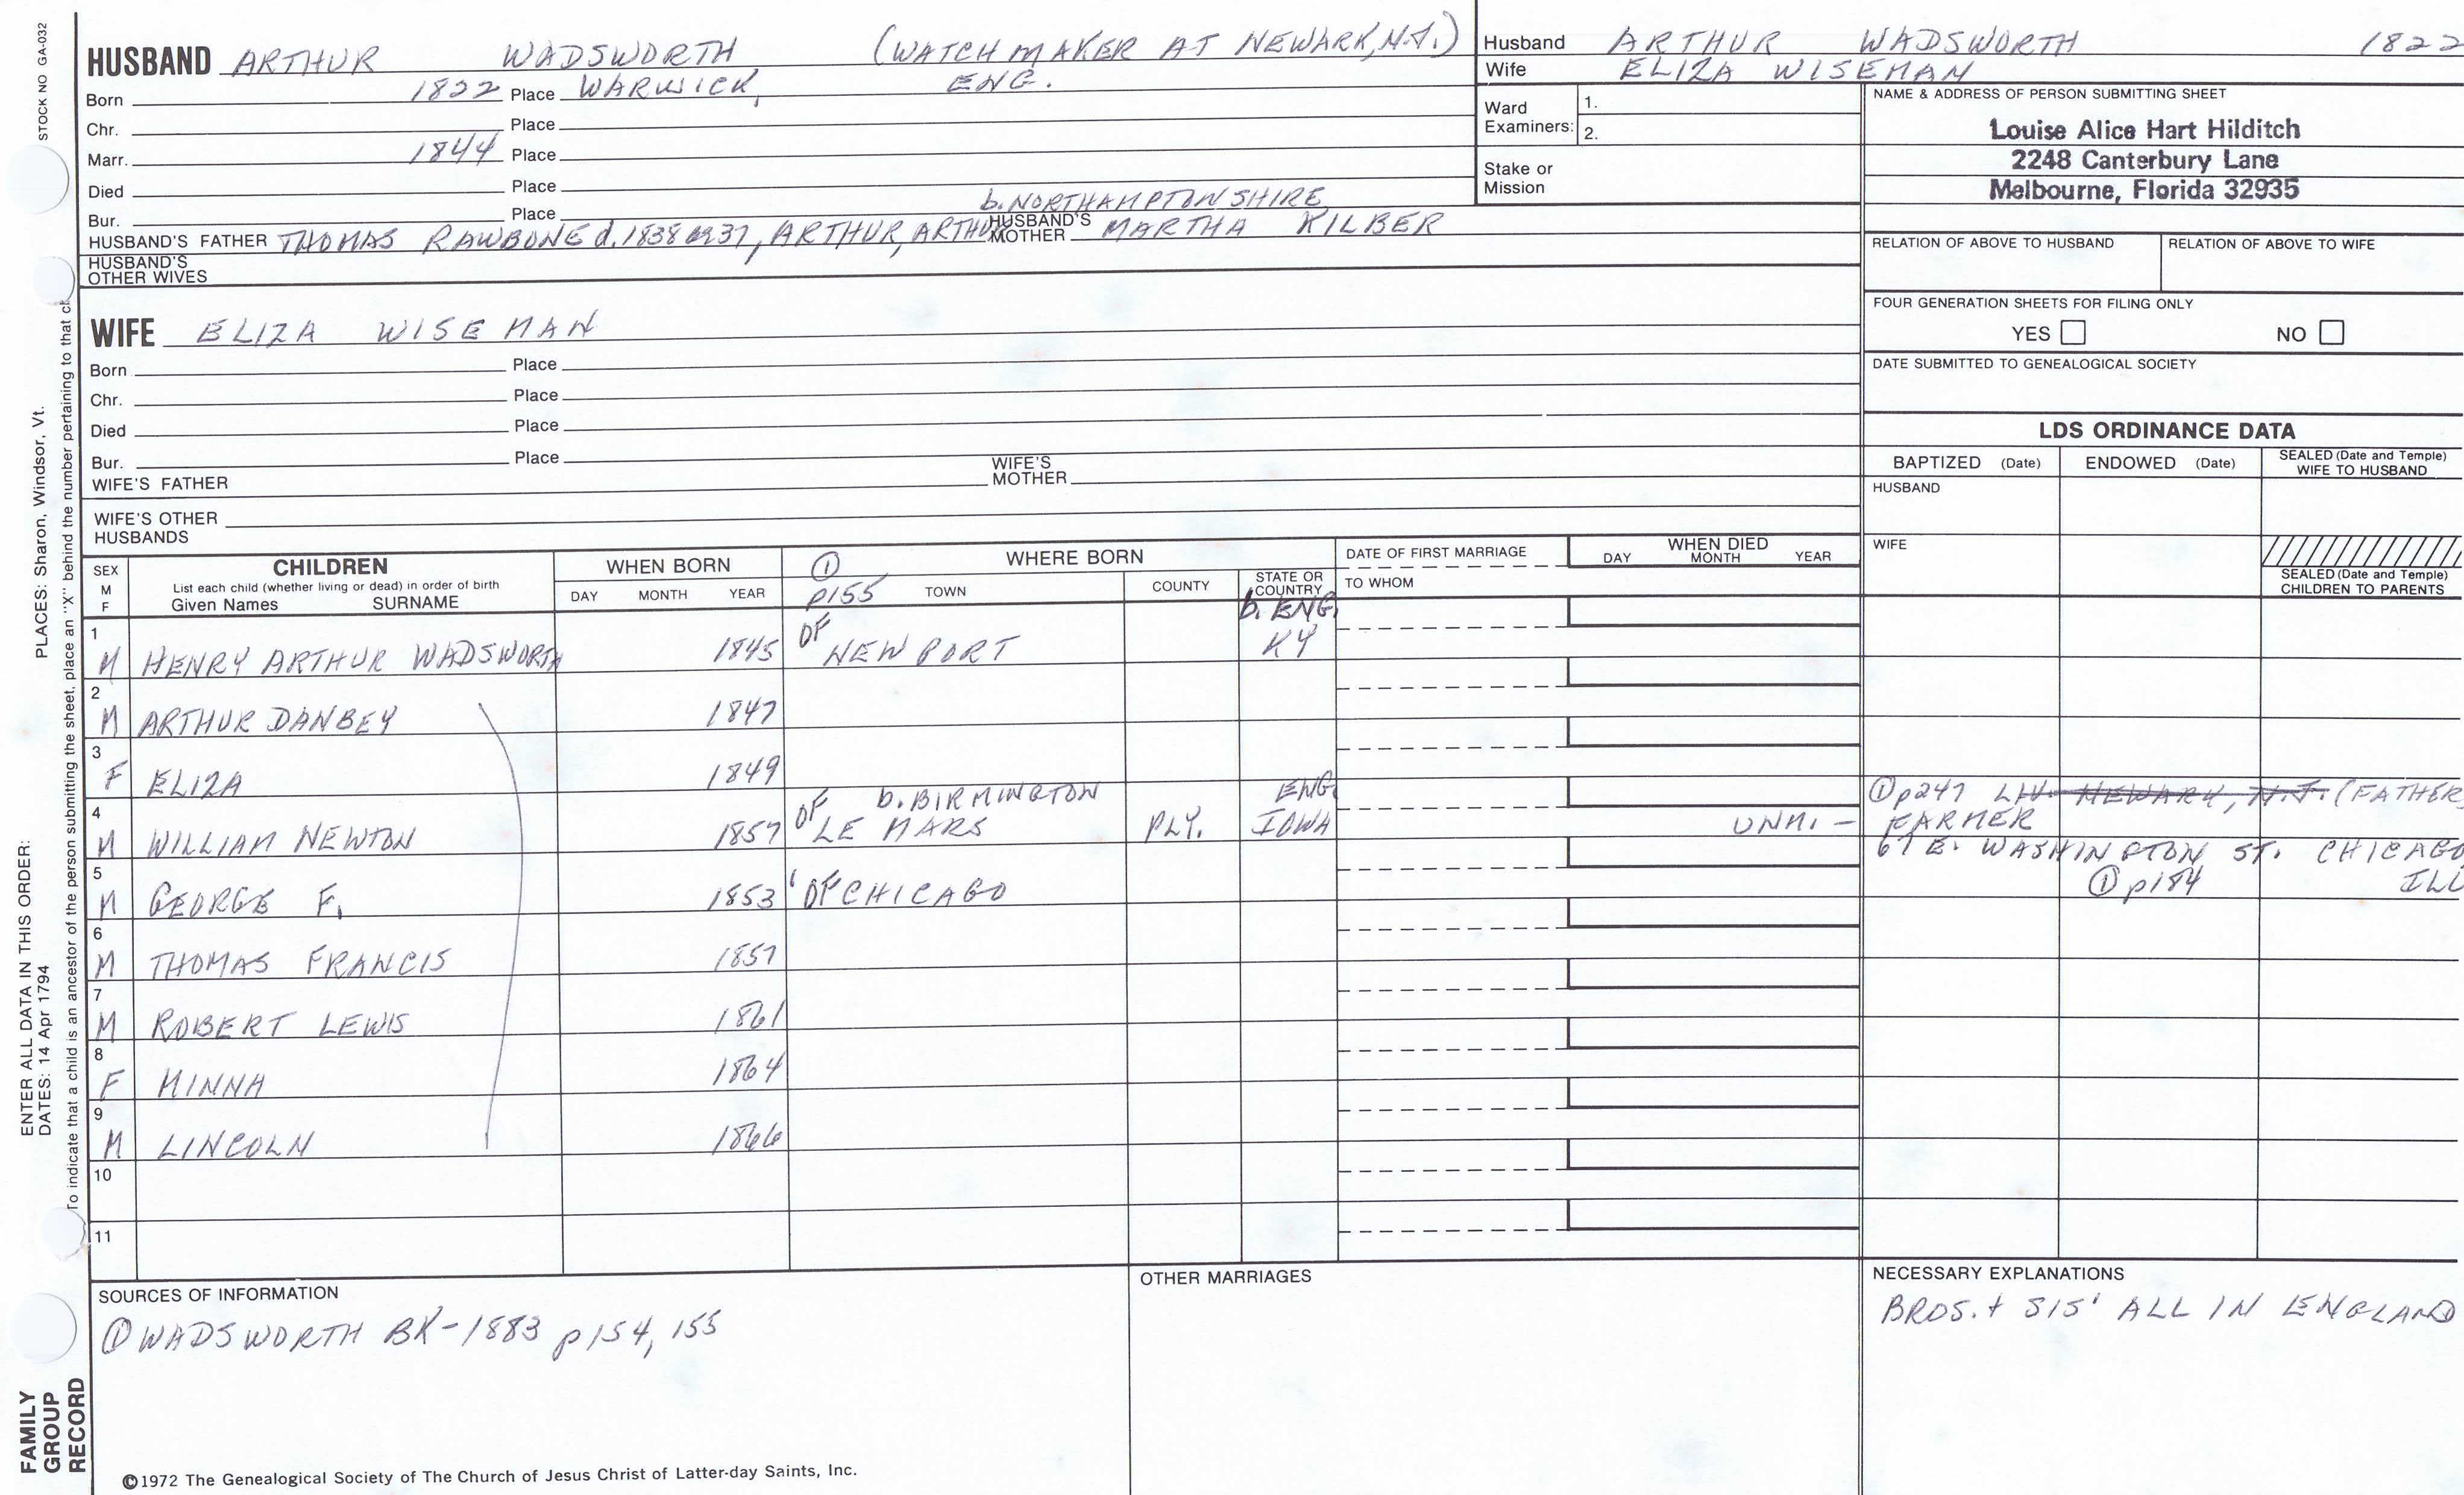 STOCK NO GA-032
PLACES: Sharon, Windsor, Vt.
ENTER ALL DATA IN THIS ORDER:
DATES: 14 Apr 1794
To indicate that a child is an ancestor of the person submitting the sheet, place an "X" behind the number pertaining to that
FAMILY
GROUP
RECORD
HUSBAND ARTHUR WADSWORTH (WATCH MAKER AT NEWARK, N.J.)
Born 1822 Place WARWICK, ENG.
Chr. Place
Marr. 1844 Place
Died Place
Bur. Place b. NORTHAMPTONSHIRE
HUSBAND'S FATHER THOMAS RAWBONE d. 1838 or 37, ARTHUR, ARTHUR HUSBAND'S MOTHER MARTHA KILBER
HUSBAND'S
OTHER WIVES
Husband ARTHUR WADSWORTH 1822
Wife ELIZA WISEMAN
Ward
Examiners: 1.
2.
Stake or
Mission
NAME & ADDRESS OF PERSON SUBMITTING SHEET
Louise Alice Hart Hilditch
2248 Canterbury Lane
Melbourne, Florida 32935
RELATION OF ABOVE TO HUSBAND RELATION OF ABOVE TO WIFE
FOUR GENERATION SHEETS FOR FILING ONLY
YES NO
DATE SUBMITTED TO GENEALOGICAL SOCIETY
WIFE ELIZA WISEMAN
Born Place
Chr. Place
Died Place
Bur. Place
WIFE'S FATHER WIFE'S MOTHER
WIFE'S OTHER
HUSBANDS
LDS ORDINANCE DATA
BAPTIZED (Date) ENDOWED (Date) SEALED (Date and Temple) WIFE TO HUSBAND
HUSBAND
WIFE
SEALED (Date and Temple)
CHILDREN TO PARENTS
SEX
M
F
CHILDREN
List each child (whether living or dead) in order of birth
Given Names SURNAME
WHEN BORN
DAY MONTH YEAR
① WHERE BORN
p155 TOWN COUNTY STATE OR COUNTRY
DATE OF FIRST MARRIAGE
TO WHOM
WHEN DIED
DAY MONTH YEAR
b. ENG.
1 M HENRY ARTHUR WADSWORTH 1845 OF NEWPORT KY
2 M ARTHUR DANBEY 1847
3 F ELIZA 1849
b. BIRMINGTON ENG. ① p247 LIV. NEWARK, N.J. (FATHER
4 M WILLIAM NEWTON 1857 OF LE MARS PLY. IOWA UNM. - FARMER
67 E. WASHINGTON ST. CHICAGO
5 M GEORGE F. 1853 OF CHICAGO ① p154 ILL
6 M THOMAS FRANCIS 1857
7 M ROBERT LEWIS 1861
8 F MINNA 1864
9 M LINCOLN 1866
10
11
SOURCES OF INFORMATION
① WADSWORTH BK-1883 p154, 155
OTHER MARRIAGES
NECESSARY EXPLANATIONS
BROS. + SIS' ALL IN ENGLAND
©1972 The Genealogical Society of The Church of Jesus Christ of Latter-day Saints, Inc.